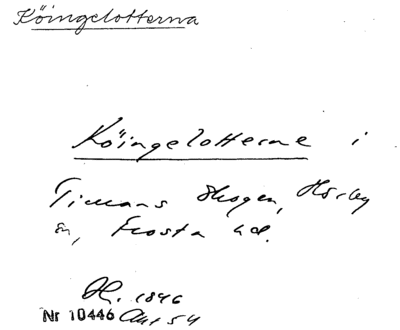 Köingelotterna
Köingelotterne i
Timans Skogen, Hörby
sn, Frosta hd.
H. 1846
Nr 10446 Akt 54